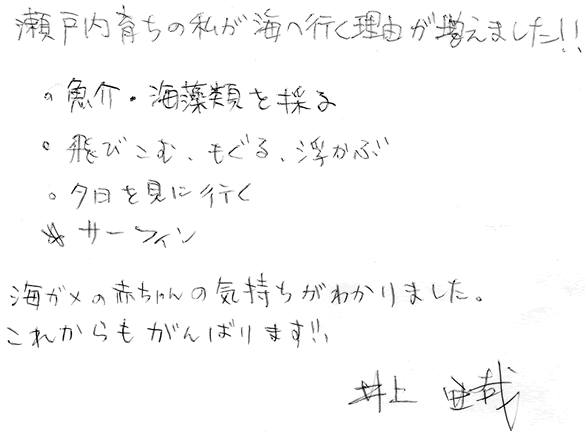 瀬戸内育ちの私が海へ行く理由が増えました!!
○魚介・海藻類を採る
○飛びこむ、もぐる、浮かぶ
○夕日を見に行く
☆サーフィン
海ガメの赤ちゃんの気持ちがわかりました。
これからもがんばります!!
井上 哉